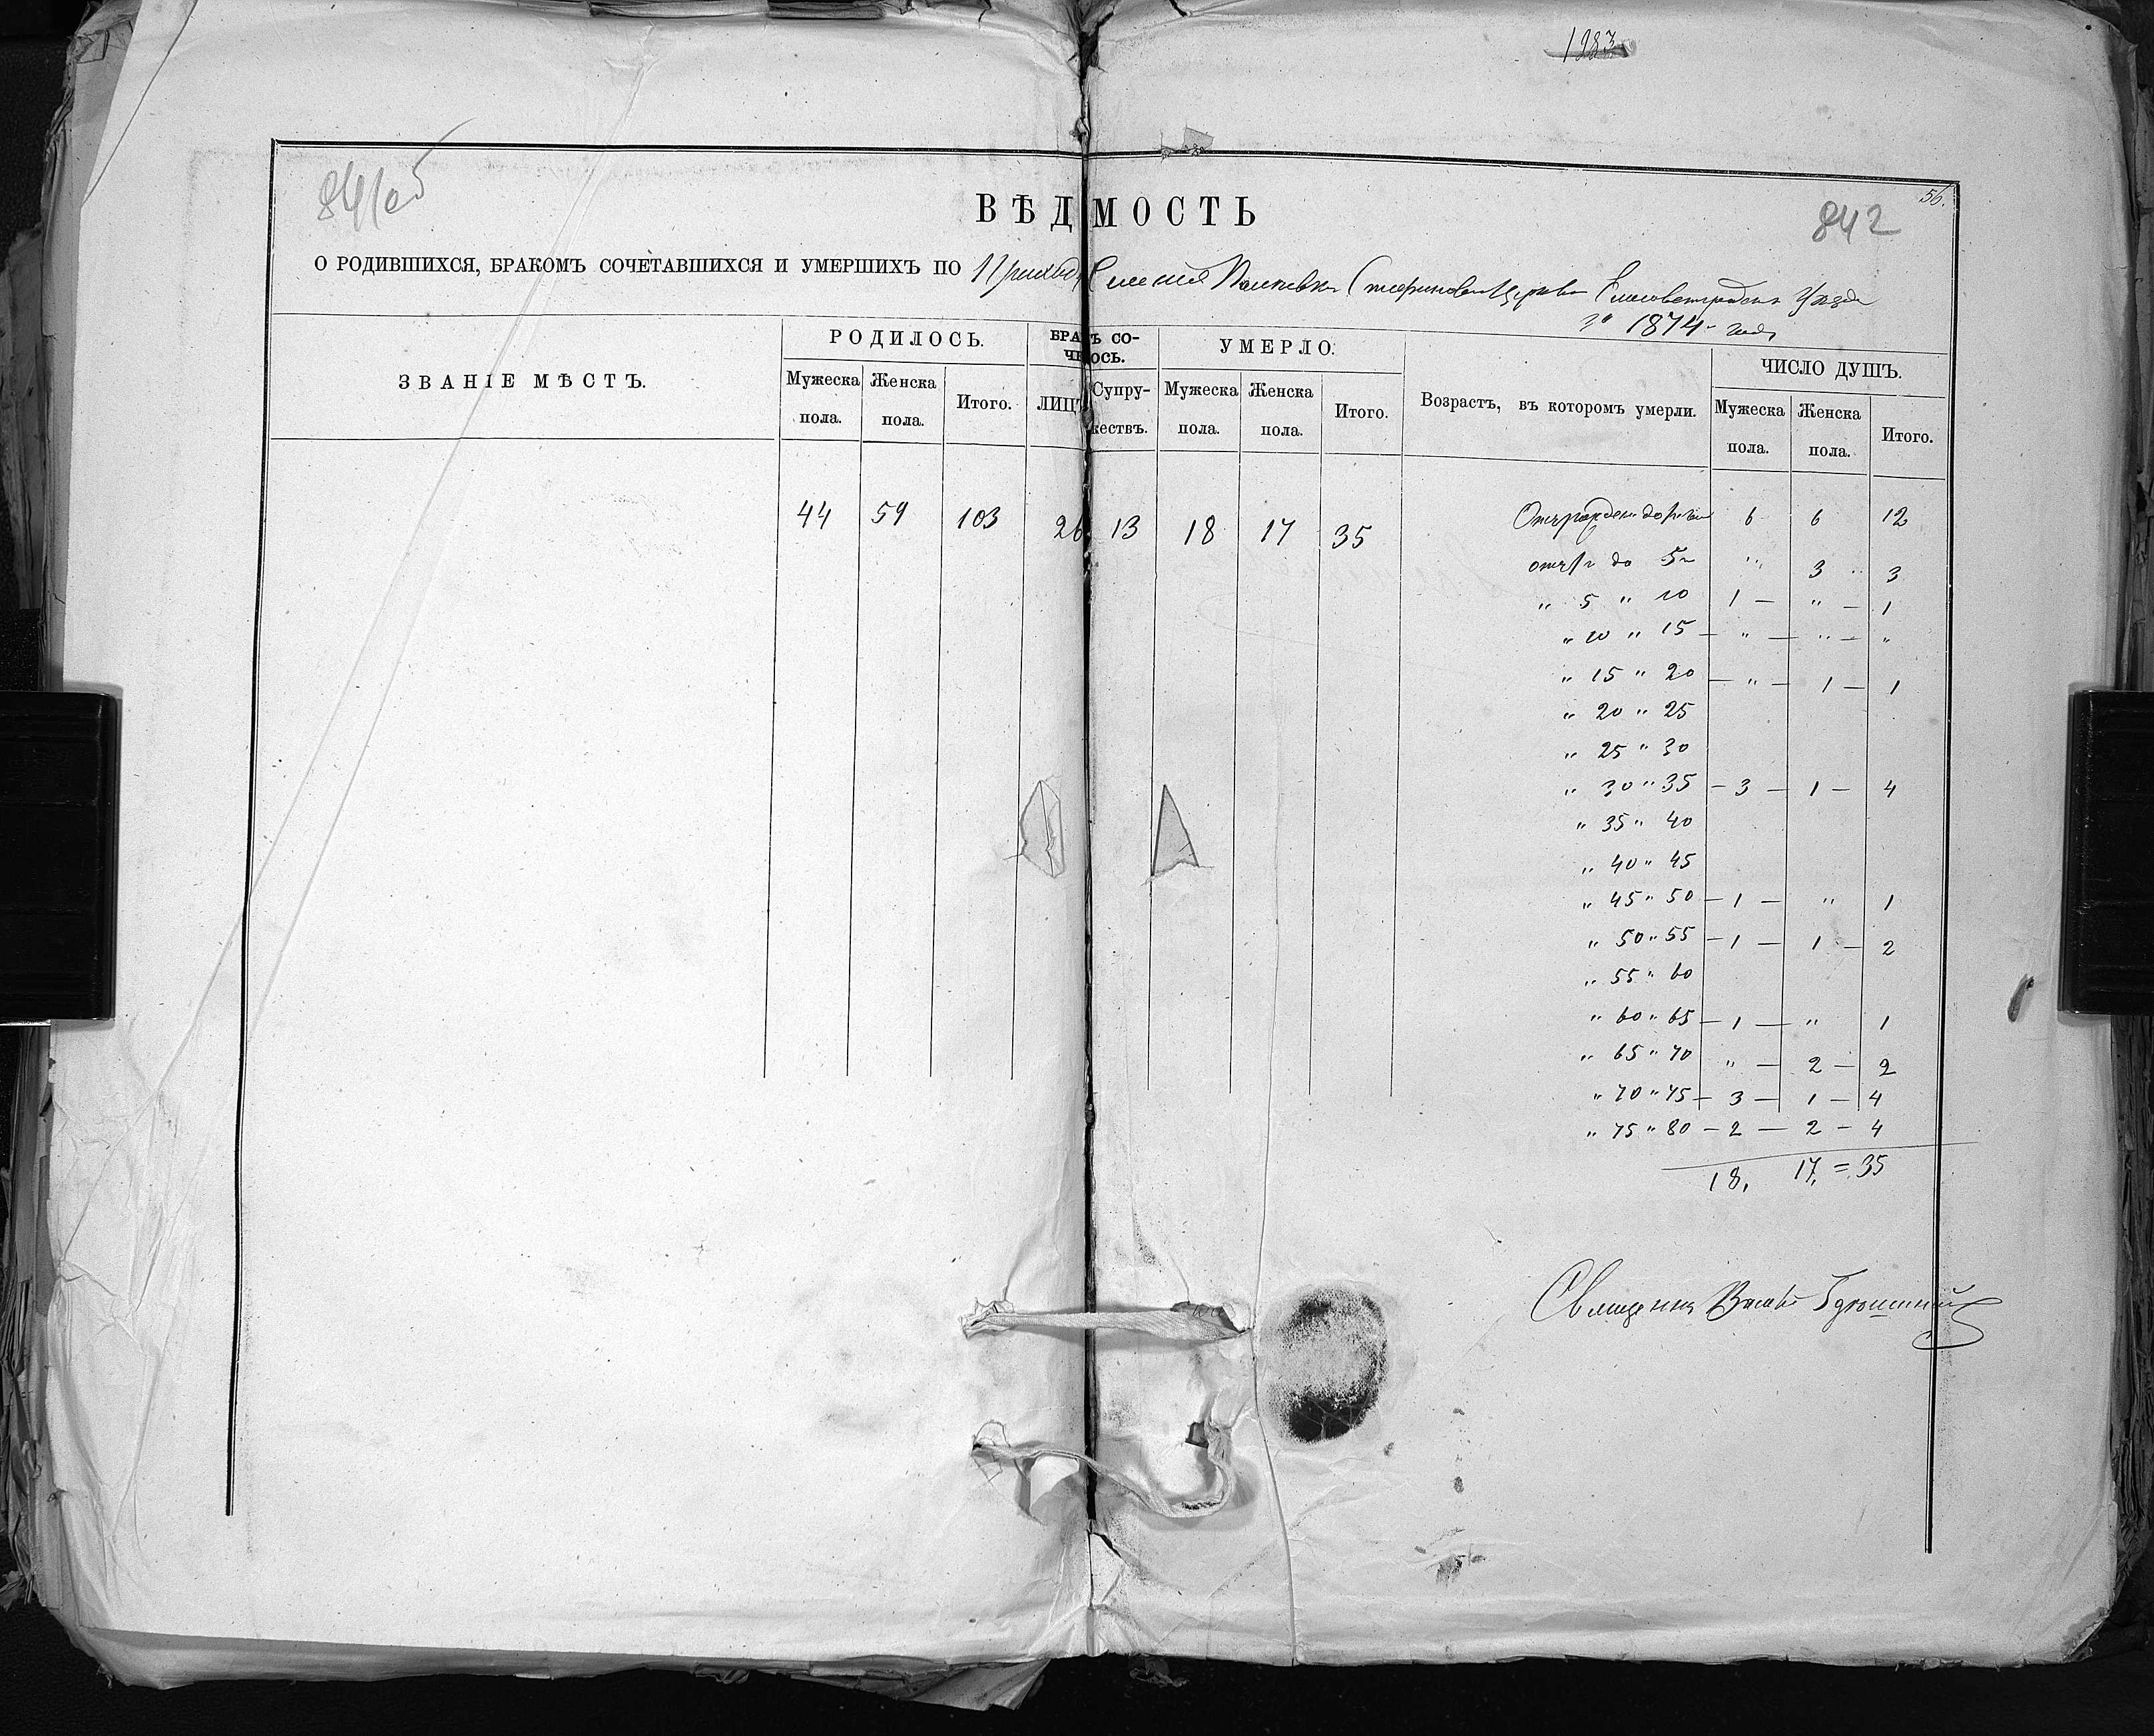 1983
841об
56.
842
ВѢДМОСТЬ
О РОДИВШИХСЯ, БРАКОМЪ СОЧЕТАВШИХСЯ И УМЕРШИХЪ ПО Приходу Церкви Елисаветградск Уѣзда
за 1874 годъ
ЗВАНІЕ МѢСТЪ.
РОДИЛОСЬ.
БРАКЪ СО-
ЧЕ ОСЬ.
УМЕРЛО.
Возрастъ, въ которомъ умерли.
ЧИСЛО ДУШЪ.
Мужеска пола.
Женска пола.
Итого.
ЛИЦЪ
Супру-
жествъ.
Мужеска пола.
Женска пола.
Итого.
Мужеска пола.
Женска пола.
Итого.
44 59 103 26 13 18 17 35
Отъ рожден до 1 6 6 12
отъ 1 г до 5 г " 3 " 3
" 5 " 10 1 — " — 1
" 10 " 15 — " — " — "
" 15 " 20 — " — 1 — 1
" 20 " 25
" 25 " 30
" 30 " 35 — 3 — 1 — 4
" 35 " 40
" 40 " 45
" 45 " 50 — 1 — " 1
" 50 " 55 — 1 — 1 — 2
" 55 " 60
" 60 " 65 — 1 — " 1
" 65 " 70 " — 2 — 2
" 70 " 75 — 3 — 1 — 4
" 75 " 80 — 2 — 2 — 4
18, 17, = 35
Священник